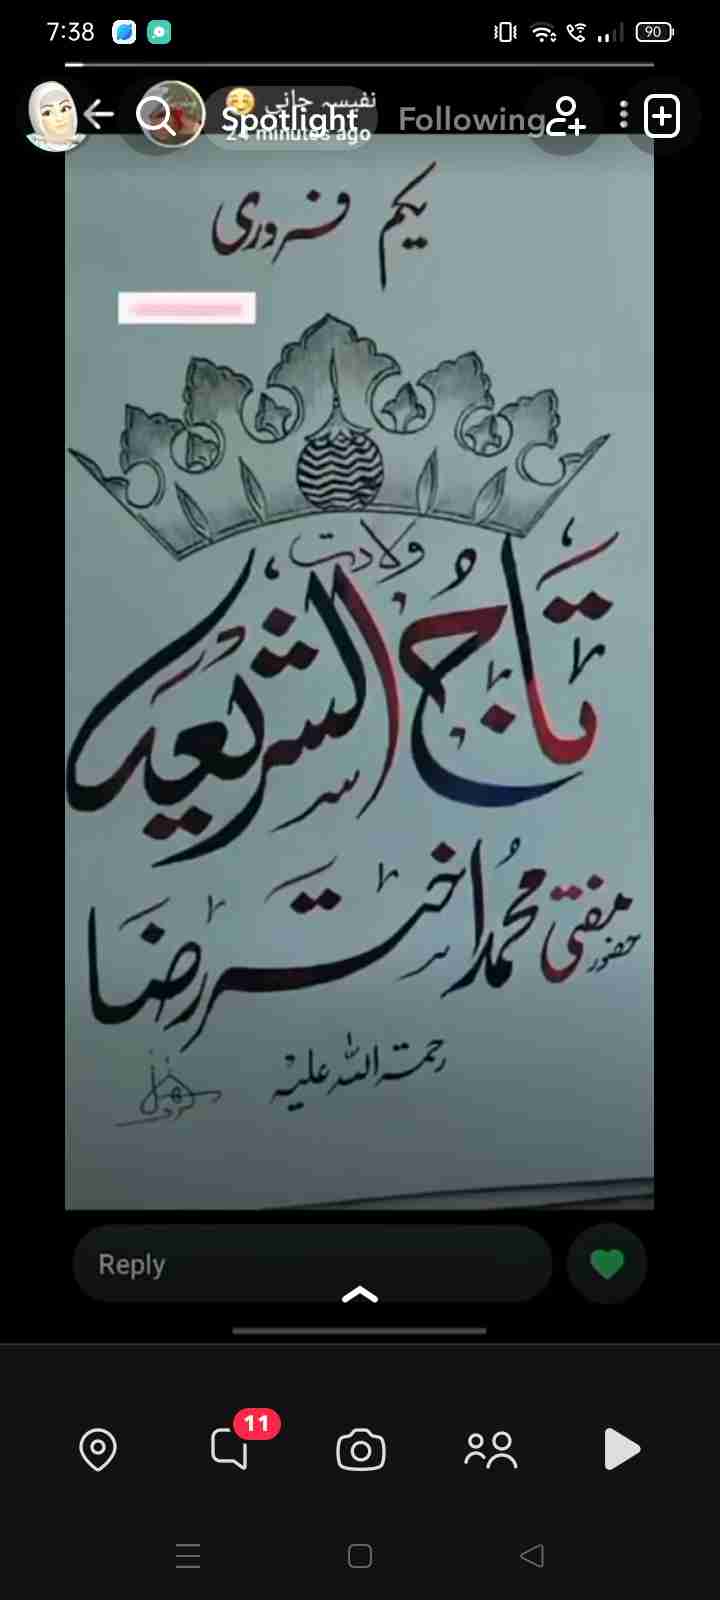 7:38
90
نفیسہ جانی ☺️
Spotlight
Following
24 minutes ago
یکم فروری
ولادت
تاجُ الشریعہ
حضور مفتی محمد اختر رضا
رحمۃ اللہ علیہ
Reply
11